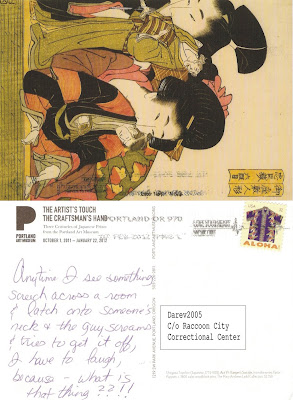 THE ARTIST'S TOUCH
THE CRAFTSMAN'S HAND
Three Centuries of Japanese Prints
from the Portland Art Museum
OCTOBER 1, 2011 – JANUARY 22, 2012
P
PORTLAND
ART MUSEUM
PORTLAND OR 970
ALOHA
Anytime I see something
Screech across a room
& latch onto someone's
neck & the guy screams
& tries to get it off,
I have to laugh,
because – what is
that thing??!!
Darev2005
C/o Raccoon City
Correctional Center